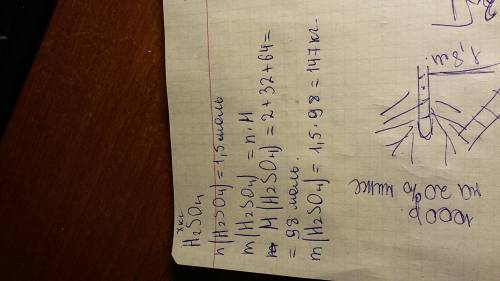 x кг
H₂SO₄
n(H₂SO₄) = 1,5 моль
m(H₂SO₄) = n·M
M(H₂SO₄) = 2+32+64=
= 98 моль.
m(H₂SO₄) = 1,5·98 = 147кг.
1,8 м.
1000р
на 20% ниже